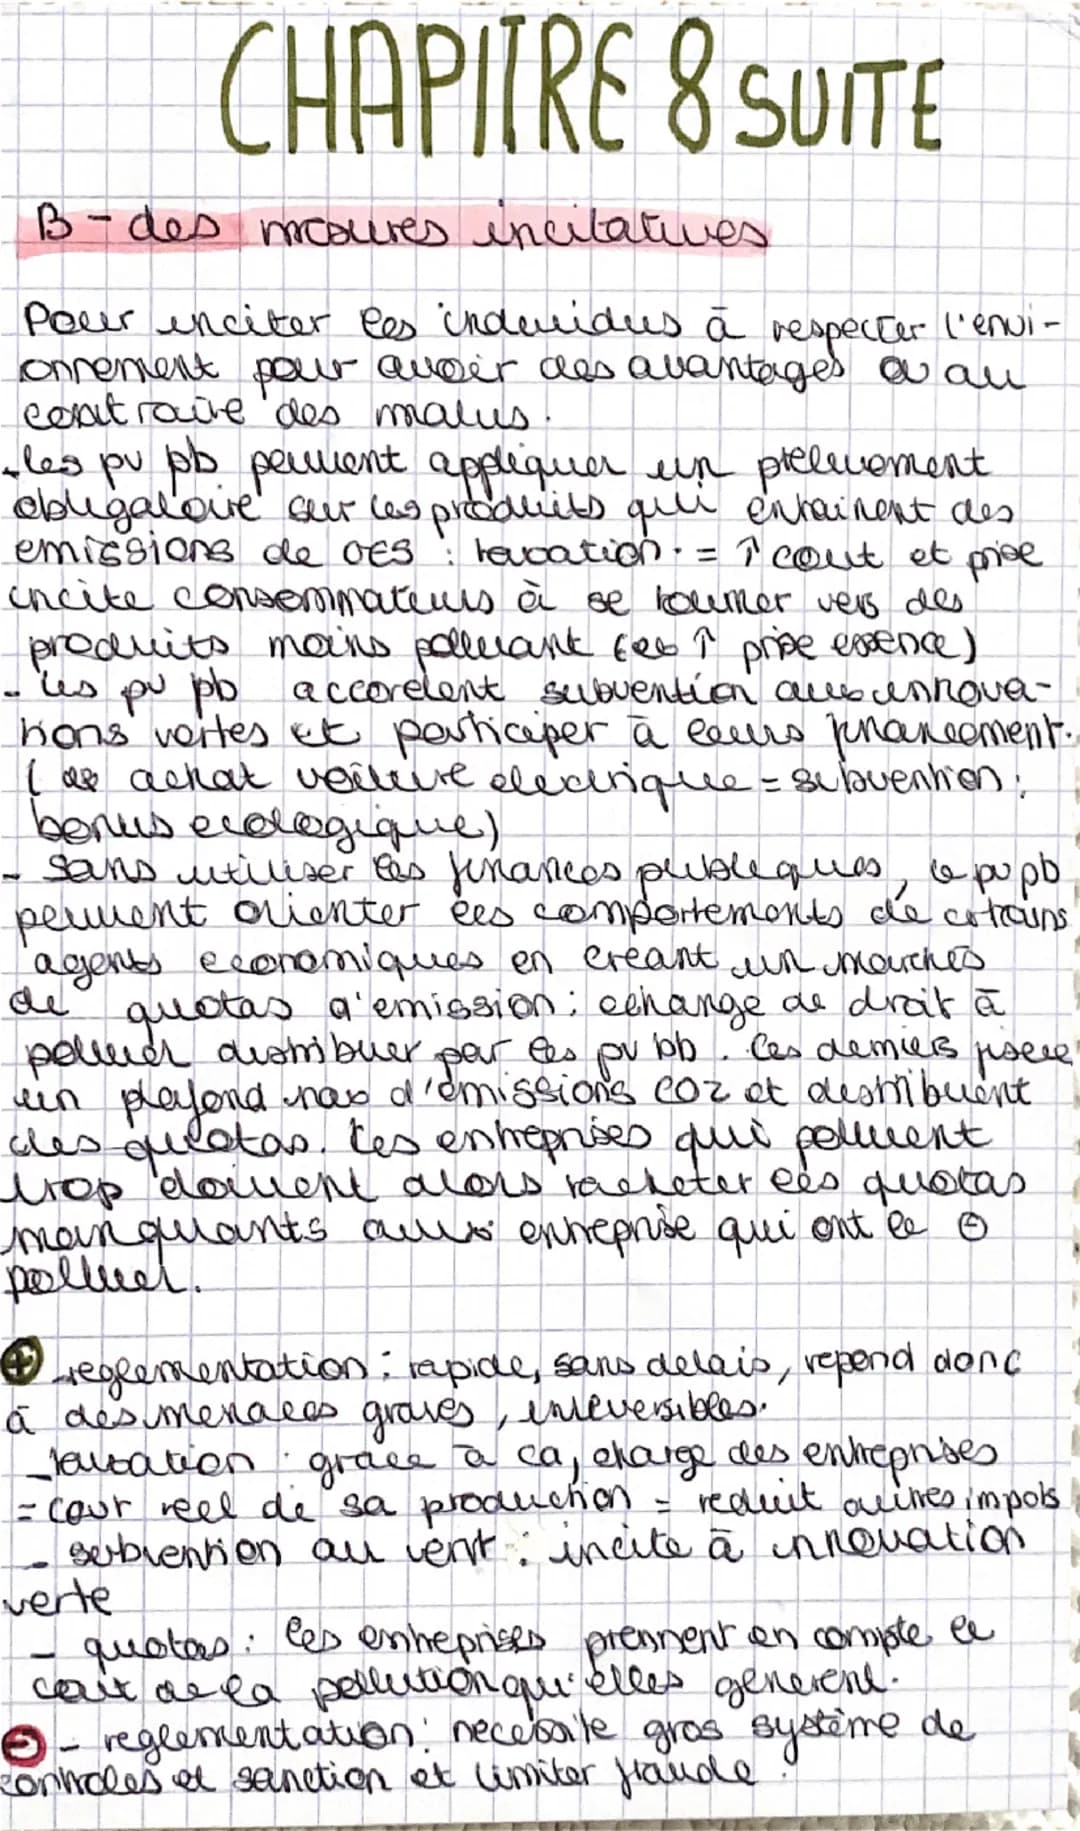 CHAPITRE 8 SUITE
B - des mesures incitatives
Pour inciter les individus à respecter l'envi-
onnement pour avoir des avantages ou au
contraire des malus.
- les pv pb peuvent appliquer un prelevement
obligatoire sur les produits qui entrainent des
emissions de GES : taxation. = ↑ cout et prix
incite consommateurs à se tourner vers des
produits moins polluant (ex ↑ prix essence)
- les pv pb accordent subvention aux innova-
tions vertes et participer à leurs financement.
( ex achat voiture electrique = subvention :
bonus ecologique)
- sans utiliser les finances publiques, le pv pb
peuvent orienter les comportements de certains
agents economiques en creant un marchés
de quotas d'emission : echange de droit à
polluer distribuer par les pv pb. Ces derniers fixent
un plafond max d'émissions CO2 et distribuent
des quotas. Les entreprises qui polluent
trop doivent alors racheter les quotas
manquants aux entreprise qui ont le ⊖
polluer.
⊕ reglementation : rapide, sans delais, repond donc
à des menaces graves, irreversibles.
- taxation : grace à ca, charge des entreprises
= cout reel de sa production = reduit autres impots
- subvention au vert : incite à innovation
verte
- quotas : les entreprises prennent en compte le
cout de la pollution qu'elles generent.
⊖ - reglementation : necessite gros système de
controles et sanction et limiter fraude.